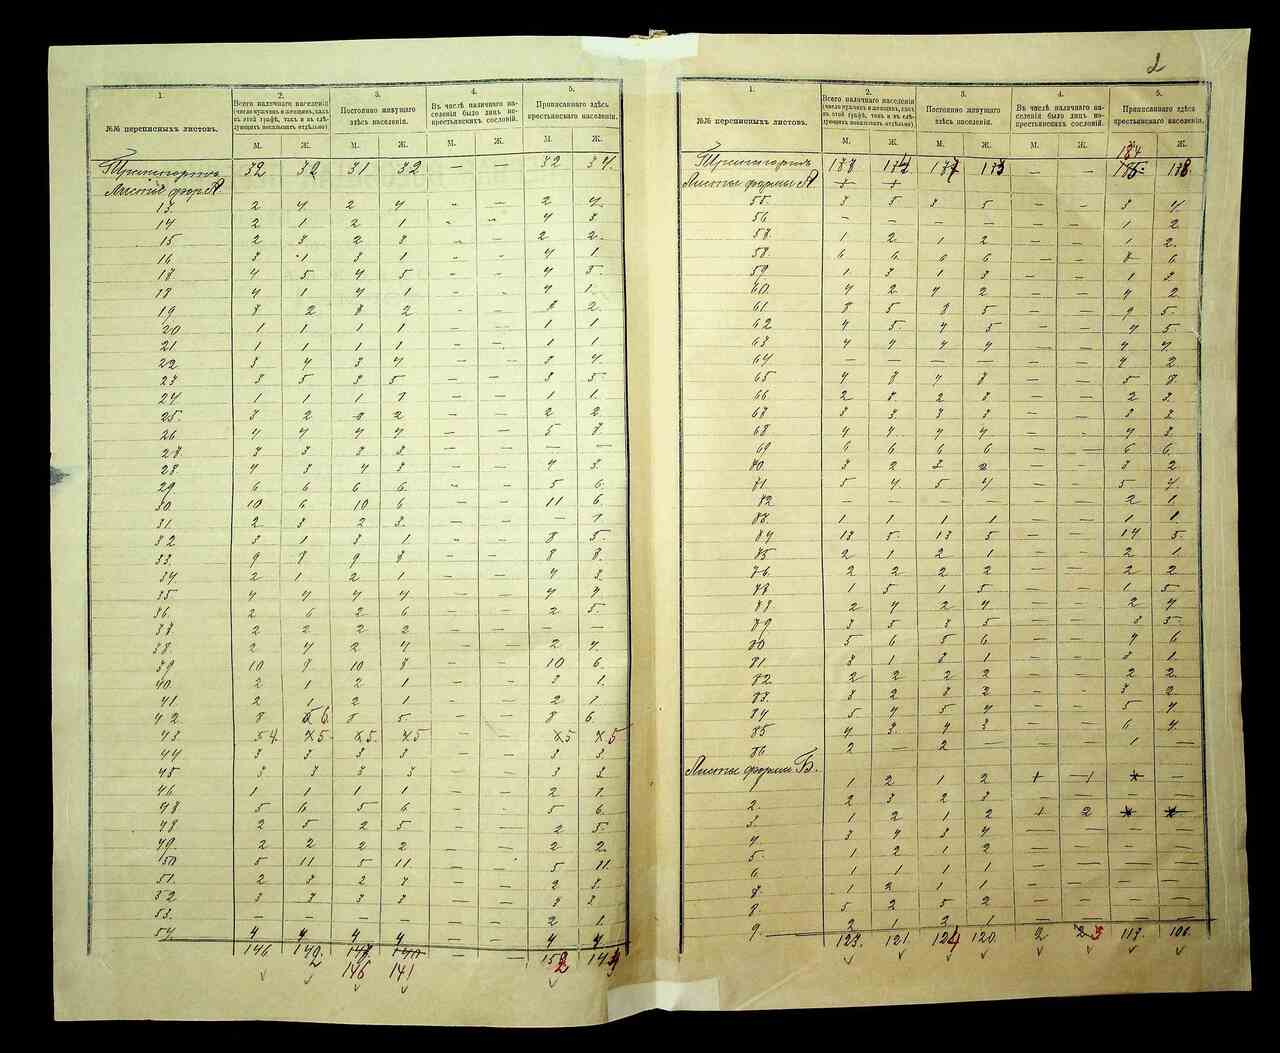 2
1.
№№ переписныхъ листовъ.
2.
Всего наличнаго населенія
(число мужчинъ и женщинъ, какъ
въ этой графѣ, такъ и въ слѣ-
дующихъ показывать отдѣльно)
3.
Постоянно живущаго
здѣсь населенія.
4.
Въ числѣ наличнаго на-
селенія было лицъ не-
крестьянскихъ сословій.
5.
Приписаннаго здѣсь
крестьянскаго населенія.
М. Ж. М. Ж. М. Ж. М. Ж.
32 32 31 32 — — 32 34
Листы фор. А
13. 2 4 2 4 - - 2 4
14 2 1 2 1 - - 4 3
15 2 3 2 3 - - 2 2
16 3 1 3 1 - - 4 1
4 5 4 5 - - 4 5
18 4 1 4 1 - - 4 1
19 3 2 3 2 - - 3 2
20 1 1 1 1 - - 1 1
21 1 1 1 1 - - 1 1
22 3 4 3 4 - - 3 4
23 3 5 3 5 - - 3 5
24 1 1 1 1 - - 1 1
25. 3 2 3 2 - - 2 2
26 4 4 4 4 - - 5 3
3 3 3 3 - - — —
28 4 3 4 3 - - 4 3
29 6 6 6 6 - - 5 6
30 10 6 10 6 - - 11 6
31. 2 3 2 3 - - — 1
32 3 1 3 1 - - 8 5
33. 9 8 9 8 - - 8 8
34. 2 1 2 1 - - 4 3
35 4 4 4 4 - - 4 4
36. 2 6 2 6 - - 2 5
2 2 2 2 - - — —
38. 2 4 2 4 - - 2 4
39 10 8 10 8 - - 10 6
40. 2 1 2 1 - - 3 1
41 2 1 2 1 - - 2 1
42. 8 6 8 5 - - 8 6
43 4 5 5 5 - - 5 5
44 3 3 3 3 - - 3 3
45 3 3 3 3 - - 3 3
46 1 1 1 1 - - 2 1
5 6 5 6 - - 5 6
48 2 5 2 5 - - 2 5
49. 2 2 2 2 - - 2 2
50 5 11 5 11 - - 5 11
51. 2 3 2 3 - - 2 3
52 3 3 3 3 - - 3 3
53. — — — — - - 2 1
54 4 4 4 4 - - 4 4
146 142 — —
146 141
1.
№№ переписныхъ листовъ.
2.
Всего наличнаго населенія
(число мужчинъ и женщинъ, какъ
въ этой графѣ, такъ и въ слѣ-
дующихъ показывать отдѣльно)
3.
Постоянно живущаго
здѣсь населенія.
4.
Въ числѣ наличнаго на-
селенія было лицъ не-
крестьянскихъ сословій.
5.
Приписаннаго здѣсь
крестьянскаго населенія.
М. Ж. М. Ж. М. Ж. Ж.
184
Листы формы А
55. 3 5 3 5 — — 3 4
56 — — — — — — 1 2
1 2 1 2 — — 1 2
58. 6 6 6 6 — — 8 6
59 1 3 1 3 — — 1 3
60. 4 2 4 2 — — 4 2
61 3 5 3 5 — — 9 5
62 4 5 4 5 — — 4 5
63 4 4 4 4 — — 4 4
64 — — — — — — 4 2
65 4 8 4 8 — — 5 8
66. 2 3 2 3 — — 2 3
3 3 3 3 — — 3 3
68 4 4 4 4 — — 4 3
69 6 6 6 6 — — 6 6
3 2 3 2 — — 3 2
5 4 5 4 — — 5 4
— — — — — — 2 1
1 1 1 1 — — 1 1
13 5 13 5 — — 14 5
2 1 2 1 — — 2 1
2 2 2 2 — — 2 2
1 5 1 5 — — 1 5
2 4 2 4 — — 2 4
3 5 3 5 — — 3 5
80 5 6 5 6 — — 4 6
81 3 1 3 1 — — 3 1
82 2 2 2 2 — — 2 2
83. 3 2 3 2 — — 3 2
84 5 4 5 4 — — 5 4
85 4 3 4 3 — — 6 4
86 2 — 2 — — — 1 —
Листы формы Б.
1 2 1 2
2. 2 3 2 3 — — — —
3. 1 2 1 2
4. 3 4 3 4 — — — —
5. 1 2 1 2 — — — —
6. 1 1 1 1 — — — —
1 2 1 1 — — — —
8. 5 2 5 2 — — — —
9. 2 1 2 1 — — — —
123. 121. 124 120. 2 3 113. 106.